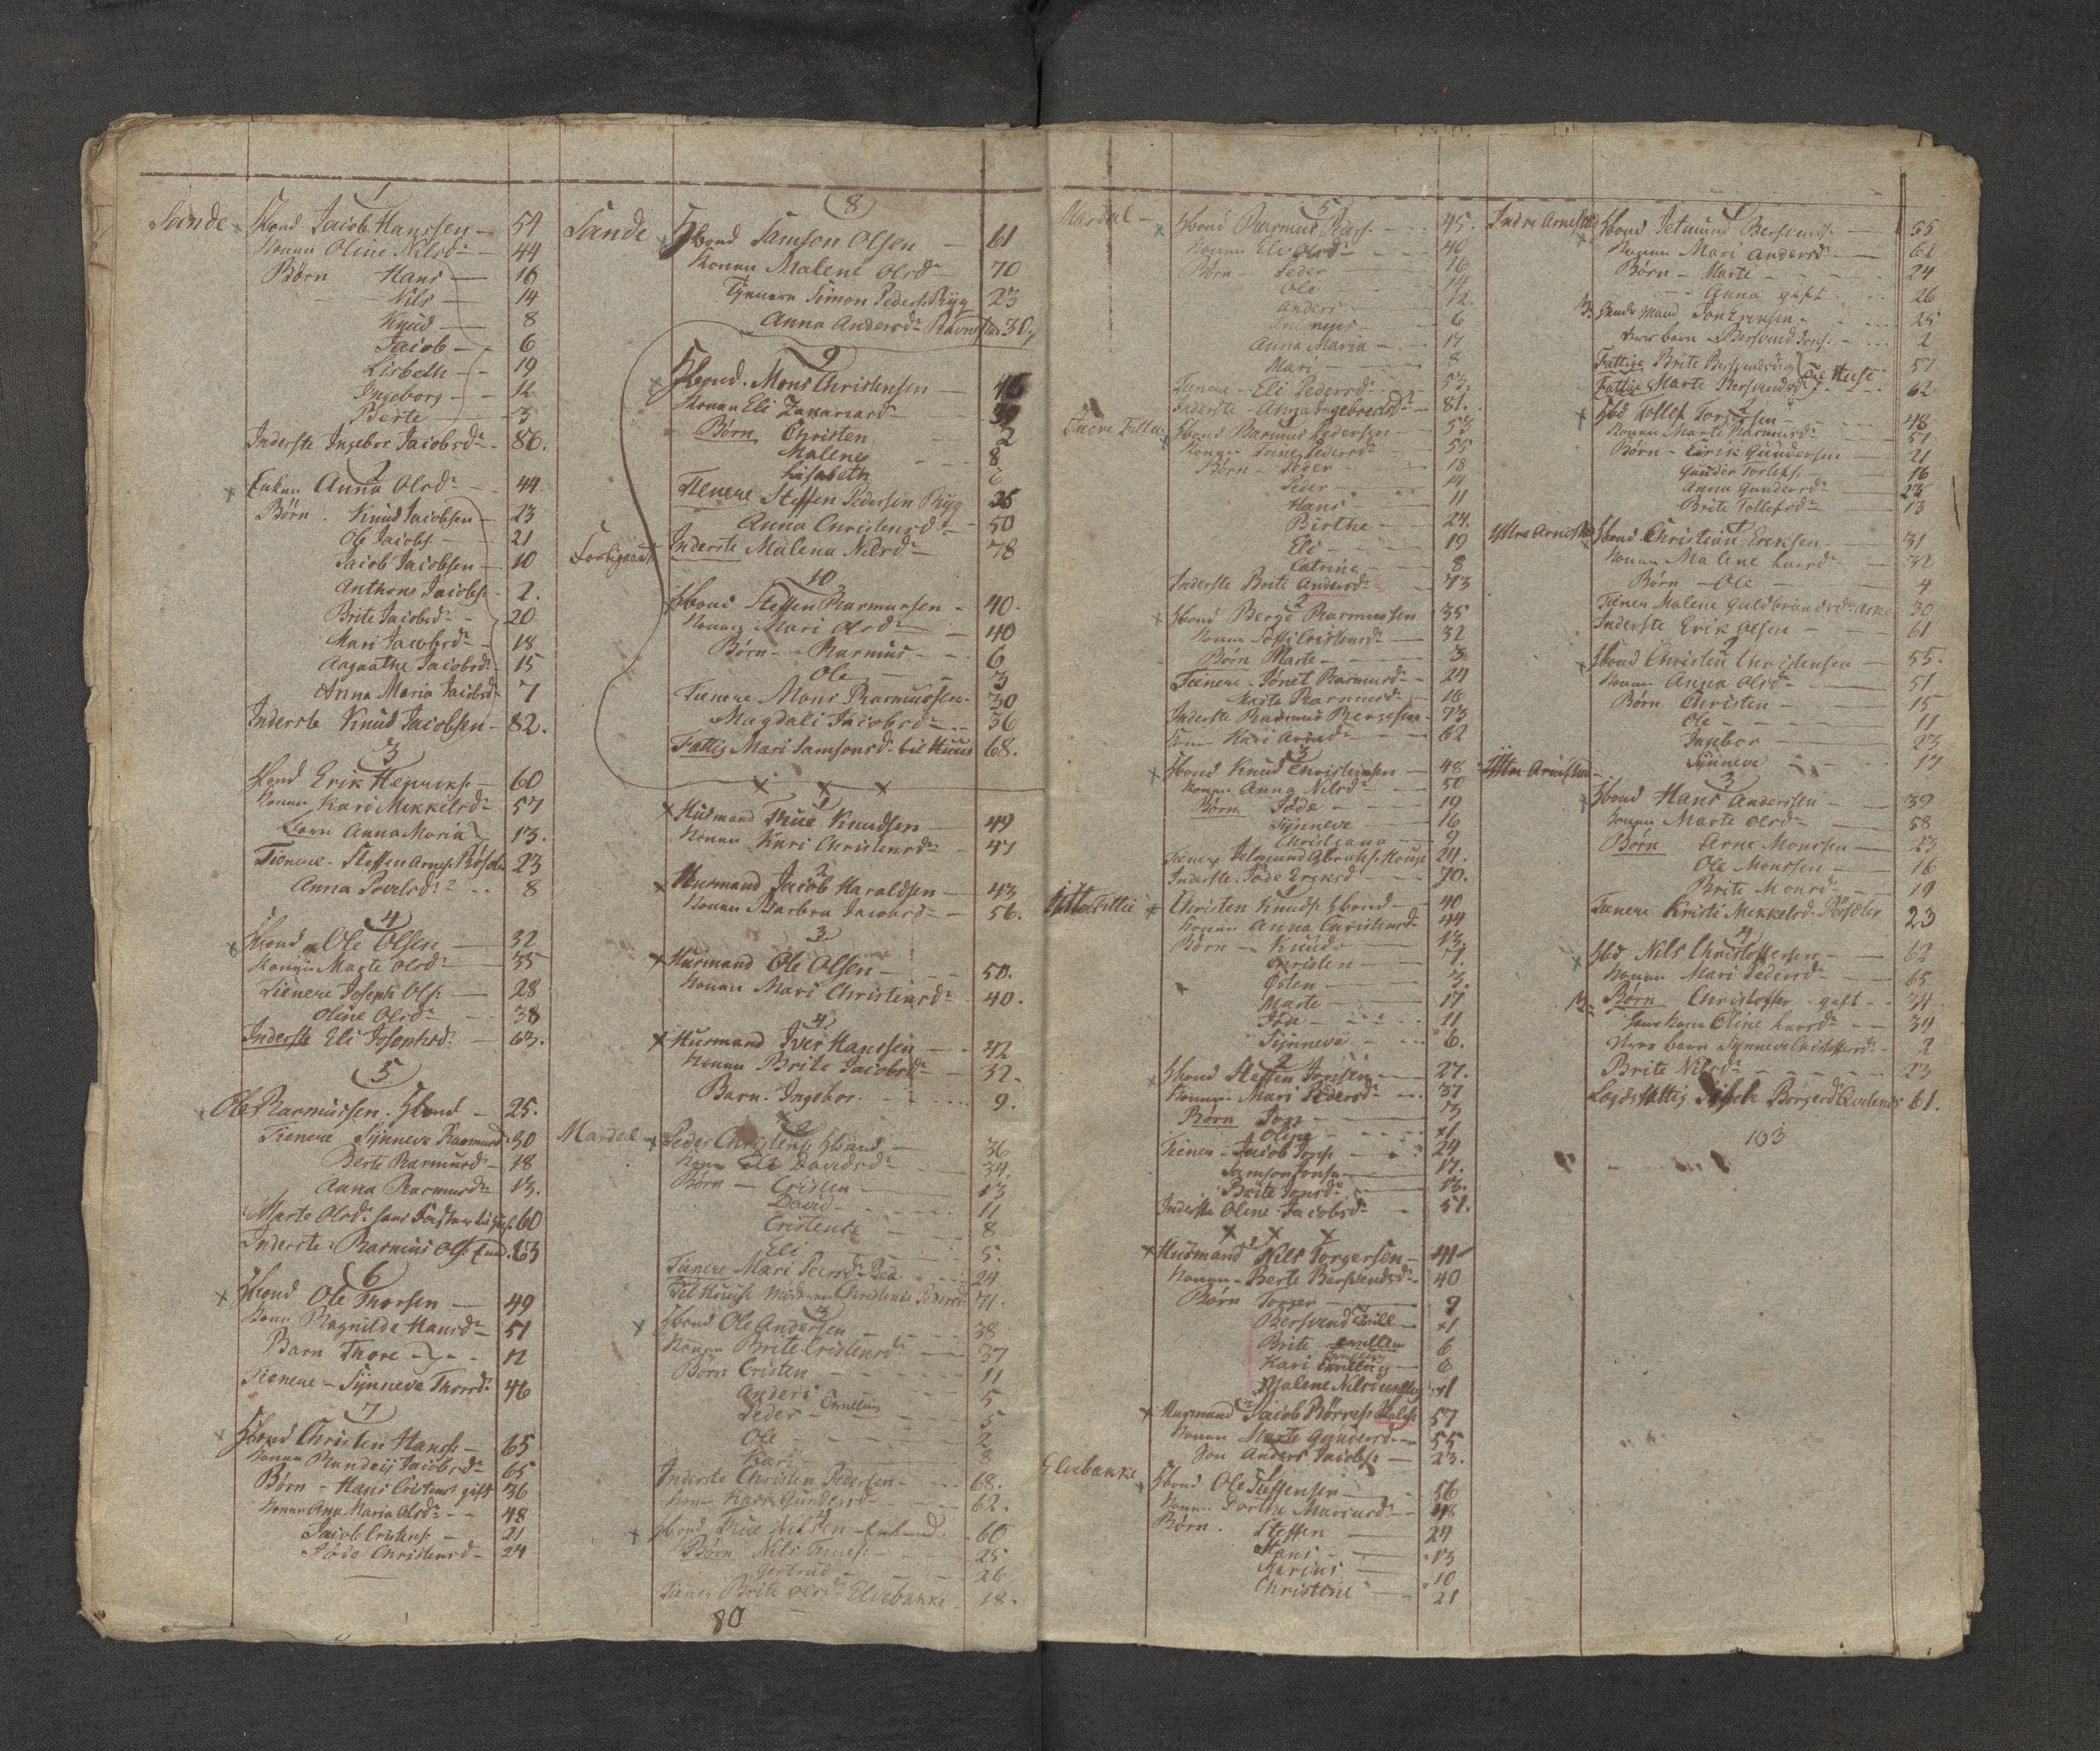 1
Sande Hbond Jacob Hanssen - 54
Konen Oline Nilsd - 44
Børn Hans - 16
Nils - 14
Knud - 8
Jacob - 6
Lisbeth - 19
Ingeborg - 12
Berte - 3
Inderste Ingebor Jacobsd - 86.
2
Enken Anna Olsd - 44
Børn. Knud Jacobsen - 23
Ole Jacobs. - 21
Jacob Jacobsen - 10
Anthons Jacobs. - 2.
Brite Jacobsd - 20
Mari Jacobsd - 18
Aagaathe Jacobsd - 15
Anna Maria Jacobsd - 7
Inderste Knud Jacobsen - 82.
3
Hbond Erik Henriks. - 60
Konen Kari Mikkelsd - 57
Barn Anna Maria 13.
Tienere - Steffen Arnes. 23
Anna Povelsd - 8
4
Hbond Ole Olsen - 32
Konen Marte Olsd - 35
Tienere Joseph Ols. - 28
Oline Olsd - 38
Inderste Eli Josephsd. - 63.
5
Ole Rasmussen. Hbond - 25.
Tienere Synneve Rasmusd 30
Berte Rasmusd - 18
Anna Rasmusd - 13.
Marte Olsd 60
Inderste Rasmus Ols. 63
6
Hbond Ole Thorsen - 49
Kone Ragnilde Hansd - 51
Barn Thore - 12
Tienere - Synneve Thorsd. 46
7
Hbond Christen Hanss. - 65
Konen Randeij Jacobsd - 65
Børn - Hans Cristens. gift 36
Konen Ana Maria Olsd - 48
Jacob Cristens. - 21
Jøde Christensd - 24
8
Sande Hbond Samson Olsen - 61
Konen Malene Olsd - 70
Tienere Simon Peders. Ryg 23
Anna Andersd 30,
9
Hbond. Mons Christensen - 46
Konen Eli Zakariasd - 39
Børn Christen - 2
Malene - 8
Lisabeth 6
Tienere Steffen Pedersen Ryg 26
Anna Christensd - 50
Inderste Malena Nilsd - 78
10
Hbond Steffen Rasmussen - 40.
Konen Mari Olsd - 40
Børn - Rasmus - 6
Ole - 3
Tienere Mons Rasmussen - 30
Magdali Jacobsd - 36
Fattig Mari Samsonsd. til Huus 68.
x x x
1
x Husmand Knudsen - 49
Konen Kari Christensd - 47
2
x Husmand Jacob Haraldsen - 43
Konen Barbra Jacobsd - 56.
3
x Husmand Ole Olsen - 50.
Konen Mari Christensd - 40.
4
x Husmand Iver Hanssen - 42
Konen Brite Jacobsd - 32.
Barn. Ingebor. - 9.
2
Mardal Peder Christens. Hbond - 36
Kone Eli Davidsd - 34.
Børn - Cristen - 13
David - 11
Cristense - 8
Eli - 5.
Tienere Mari Peersd 24
Til Huuse Moderen Christense Pedersd 71.
3
Hbond Ole Andersen - 38
Konen Brite Cristensd - 37
Børn Cristen - 11
Anders - 5
Peder - 5
Ole - 2
Kari - 8
Inderste Christen Pedersen - 68.
Konen Kari Gundersd - 62.
4
Hbond Nilsen - 60
Børn Nils - 25
Gertrud - 26
Tiener Brite Olsd Elvebakke 18.
80
5
Mardal - Hbond Rasmus Rass. - 45.
Konen Eli Olsd - 40
Børn - Peder - 16
Ole - 14
Anders - 12.
6
Anna Maria - 17
Mari - 8
Tienere - Eli Pedersd - 53.
Inderste - Anna Ingebretsd - 81.
Hbond Rasmus Pedersen - 53
Konen Pedersd - 55
Børn - Peder - 18
Peder - 14
Hans - 11
Birthe - 24.
Eli - 19
Catrine - 8
Inderste Brite Andersd - 73
2
Hbond Berge Rasmussen 35
Konen Cristensd - 32
Børn Marte - 3
Tienere - Rasmusd - 24
Marte Rasmusd - 16
Inderste Rasmus Bergesen - 73
Kari 62
3
Hbond Knud Christensen - 48
Konen Anna Nilsd - 50
Børn Jøde - 19
Synneve - 16
Christiana - 9
Tiener Jetmund 24.
Inderste. Jøde Eriksd - 70.
1
Christen Knuds. Hbond - 40
Konen Anna Christensd 44
Børn - Knud - 13.
Christen - 7.
Østen - 3.
Marte - 17
Jøde - 11
Synneve - 6.
2
Hbond Steffen Jonsen - 27.
Konen Mari Pedersd - 37
Børn Jon - 3
Oline - x1
Tiener - Jacob Jons. - 24
Samson Jonsen - 17.
Brite Jonsd - 13.
Inderste Oline Jacobsd - 51.
x x x
x Husmand Nils Torgersen - 41
Konen - Berte Bersvendsd - 40
Børn Torger - 9
Bersvend - x1
Brite - 6
Kari - 6
Malene Nilsd x1
2
x Husmand Jacob Børres. 57
Konen Marte Gundersd - 55
Søn Anders Jacobs. - 23.
1
Elvebakke Hbond Ole Steffensen - 56
Konen Dorthe Mariusd - 48
Børn. Steffen - 24
Hans - 13
Marius - 10
Christense - 21
1
Indre Arnestad Hbond Jetmund Bersvends. - 55
Konen Mari Andersd - 62
Børn - Marte - 24
Anna gift - 26
Hendes Mand Jon Eriksen - 25
Deres barn - Bersvend Jons. - 2
Fattige Brite Bersvendsd 57
Fattig Marte Bersvendsd til Huse - 62
2
Hbd Tollef Torgersen - 48
Konen Marte Rasmusd - 51
Børn - Eirik Gundersen - 21
Gunder Torlefs. - 16
Anna Gundersd - 23
Brite Tollefsd - 13
1
Yttre Arnestad Hbond Christian Eriksen - 31
Konen Malene - 32
Børn - Ole - 4
Tiener Malene Guldbrandsd 30
Inderste Erik Olsen - 61
2
Hbond Christen Christensen - 55.
Konen Anna Olsd - 51
Børn Christen - 15
Ole - 11
Ingebor - 23
Synneve - 17
3
Yttre Arnestad - Hbond Hans Andersen - 39
Konen Marte Olsd - 58
Børn Arne Monssen - 23
Ole Monssen - 16
Brite Monsd - 19
Tienere Kristi Mikkelsd 23
4
Hbd Nils Christoffersen - 62
Konen Mari Pedersd - 65
Børn Christoffer gift - 34
Hans Kone Oline - 34
Deres barn Synneve Christoffersd - 2
Brite Nilsd - 23
Lægds Fattig 61.
103